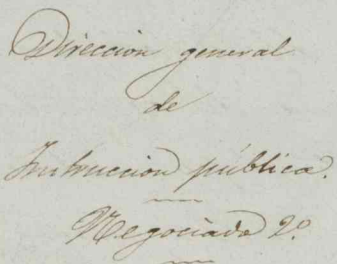 Direccion general
de
Instruccion pública.
Negociado 2º